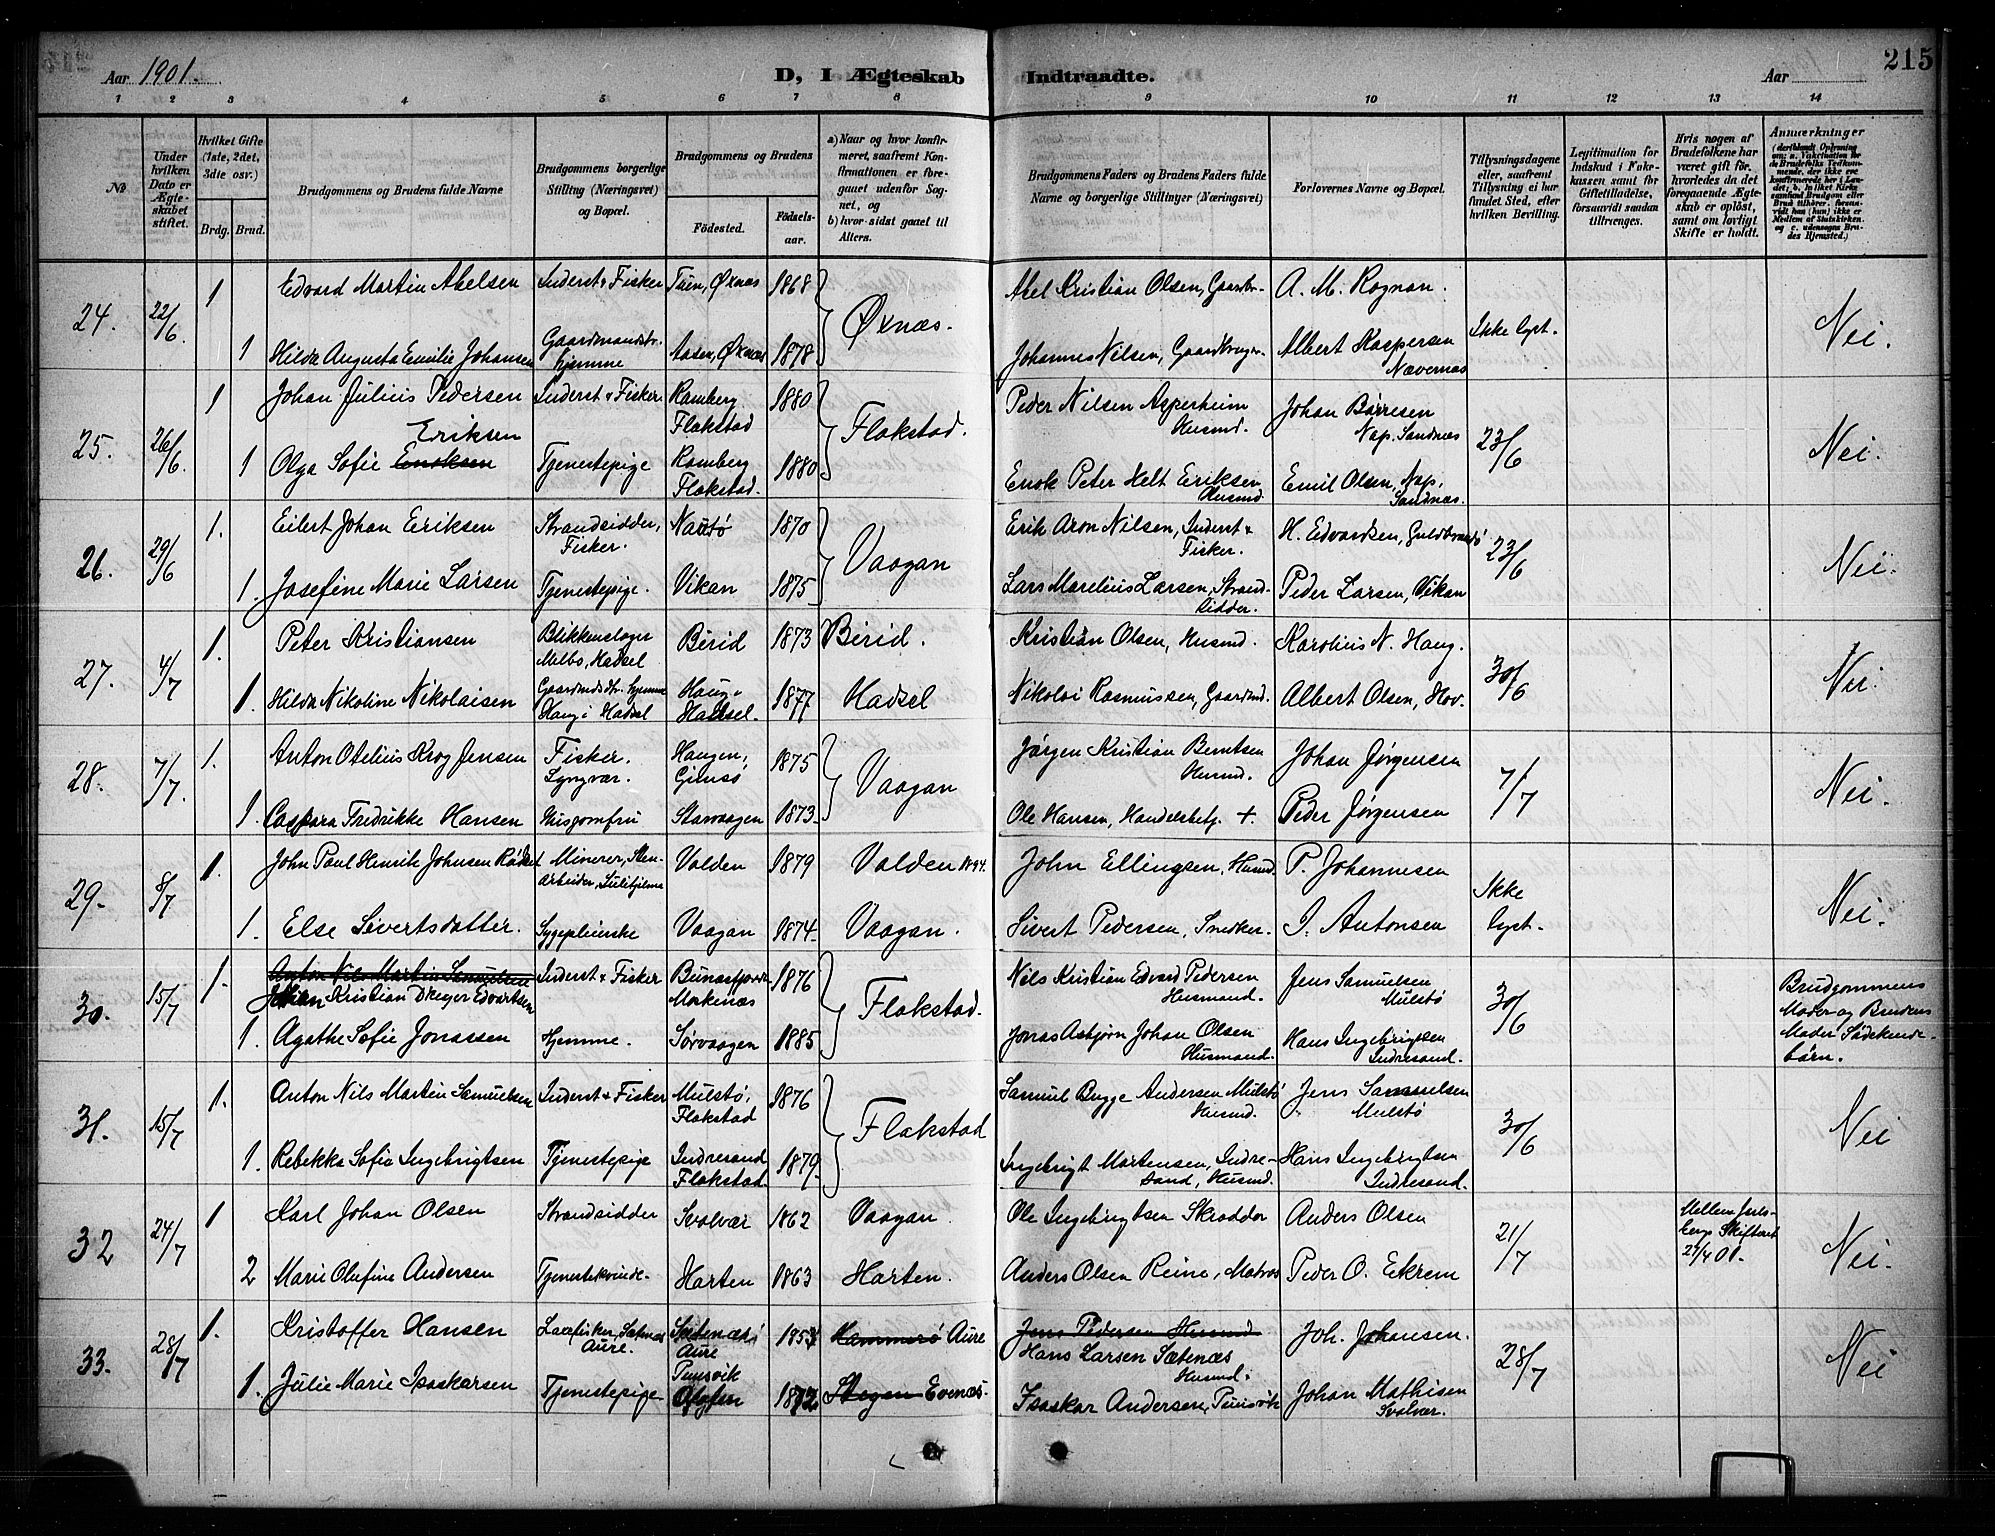 Aar 1901.
D, I Ægteskab Indtraadte.
Aar
215
1 2 3 4 5 6 7 8 9 10 11 12 13 14
№
Under hvilken Dato er Ægteskabet stiftet.
Hvilket Gifte (1ste, 2det, 3die osv.)
Brdg. Brud.
Brudgommens og Brudens fulde Navne
Brudgommens borgerlige Stilling (Næringsvei) og Bopæl.
Brudgommens og Brudens
Födested. Födselsaar.
a) Naar og hvor konfirmeret, saafremt Konfirmationen er foregaaet udenfor Sognet, og
b) hvor sidst gaaet til Alters.
Brudgommens Faders og Brudens Faders fulde Navne og borgerlige Stillinger (Næringsvei)
Forlovernes Navne og Bopæl.
Tillysningsdagene eller, saafremt Tillysning ei har fundet Sted, efter hvilken Bevilling.
Legitimation for Indskud i Fakkassen samt for Giftetilladelse, forsaavidt saadan tiltrænges.
Hvis nogen af Brudefolkene har været gift før, hvorledes da det foregaaende Ægteskab er oplöst, samt om lovligt Skifte er holdt.
Anmærkninger
24. 22/6 1 Edvard Martin Abelsen Inderst & Fisker Tuen, Øxnæs 1868 Øxnæs. Abel Kristian Olsen, Gaardbr. A. M. Rognan. Ikke lyst. Nei.
1 Hilda Augusta Emilie Johansen Gaardmandsbr. hjemme Aasen, Øxnæs 1878 Johannes Nilsen, Gaardbruger. Albert Kaspersen Nævernes
25. 26/6 1 Johan Julius Pedersen Inderst & Fisker. Ramberg Flakstad 1880 Flakstad. Peder Nilsen Asperheim Husmd. Johan Børresen Nap. Sandnæs 23/6 Nei.
Eriksen
1 Olga Sofie Enoksen Tjenestepige Ramberg Flakstad. 1880 Enok Peter Helt Eriksen Husmd. Emil Olsen, Nap, Sandnæs.
26. 29/6 1. Eilert Johan Eriksen Strandsidder, Fisker. Nautø 1870 Vaagan Erik Aron Nilsen, Inderst & Fisker. H. Edvardsen, Guldbrandsø 23/6 Nei.
1. Josefine Marie Larsen Tjenestepige. Vikan 1875 Lars Marelius Larsen, Strandsidder. Peder Larsen, Vikan
27. 4/7 1. Peter Kristiansen Blikkenslager Melbo, Hadsel Birid 1873 Birid. Kristian Olsen, Husmd. Karolius N. Haug. 30/6 Nei.
1. Hilda Nikoline Nikolaisen Gaardmdsdtr. hjemme Haug i Hadsel Haug i Hadsel. 1877 Hadsel Nikolai Rasmussen, Gaardmd. Albert Olsen, Hov.
28. 7/7. 1. Anton Otelius Krog Jensen Fisker. Lyngvær. Haugen, Gimsø 1875 Vaagan Jørgen Kristian Berntsen Husmd. Johan Jørgensen 7/7 Nei.
1. Caspara Fredrikke Hansen Husjomfru Storvaagen 1873 Ole Hansen, Handelsbetj. +. Peder Jørgensen
29. 8/7 1. John Paul Henrik Johnsen Minerer, Stenarbeider, Sulitjelma Valden 1879 Valden 1894. John Ellingsen, Husmd. P. Johannesen Ikke lyst. Nei.
1. Else Sivertsdatter. Sygepleierske Vaagan 1874 Vaagan. Sivert Pedersen, Snedker. J. Antonsen
30. 15/7 1. Anton Nils Martin Samuelsen Inderst & Fisker Bunesfjord Mærkenæs 1876 Flakstad. Nils Kristian Edvard Pedersen Husmand. Jens Samuelsen Mulstø 30/6 Brudgommens Moder og Brudens Moder Södskendebörn.
Johan Kristian Dreyer Edvartsen
1. Agathe Sofie Jonassen Hjemme. Sørvaagen 1885 Jonas Asbjørn Johan Olsen Husmand. Hans Ingebrigtsen Indresand.
31. 15/7 1. Anton Nils Martin Samuelsen Inderst & Fisker Mulstø, Flakstad 1876 Flakstad Samuel Bugge Andersen Mulstø Husmd. Jens Samuelsen Mulstø 30/6 Nei
1. Rebekka Sofie Ingebrigtsen Tjenestepige Indresand Flakstad. 1879 Ingebrigt Mortensen, Indresand, Husmd. Hans Ingebrigtsen Indresand.
32 24/7 1 Karl Johan Olsen Strandsidder Svolvær 1862 Vaagan. Ole Ingebrigtsen Skrædder Anders Olsen 21/7 Skifteret 27/4 01. Nei.
2 Marie Olufine Andersen Tjenestekvinde. Harten 1863 Harten. Anders Olsen Reine, Matros Peder O. Ekrem
33. 28/7 1. Kristoffer Hansen Laxefisker, Sætenæs Aure. Sætenæs Aure 1857 Hammerö Aure Jens Pedersen Husmd Joh. Johansen. 28/7 Nei
Hans Larsen Sætenæs Husmd.
1. Julie Marie Isaskarsen Tjenestepige Tunsvik Ofoten 1872 Stegen Evenæs. Isaskar Andersen, Tunsvik Johan Mathisen Svolvær.